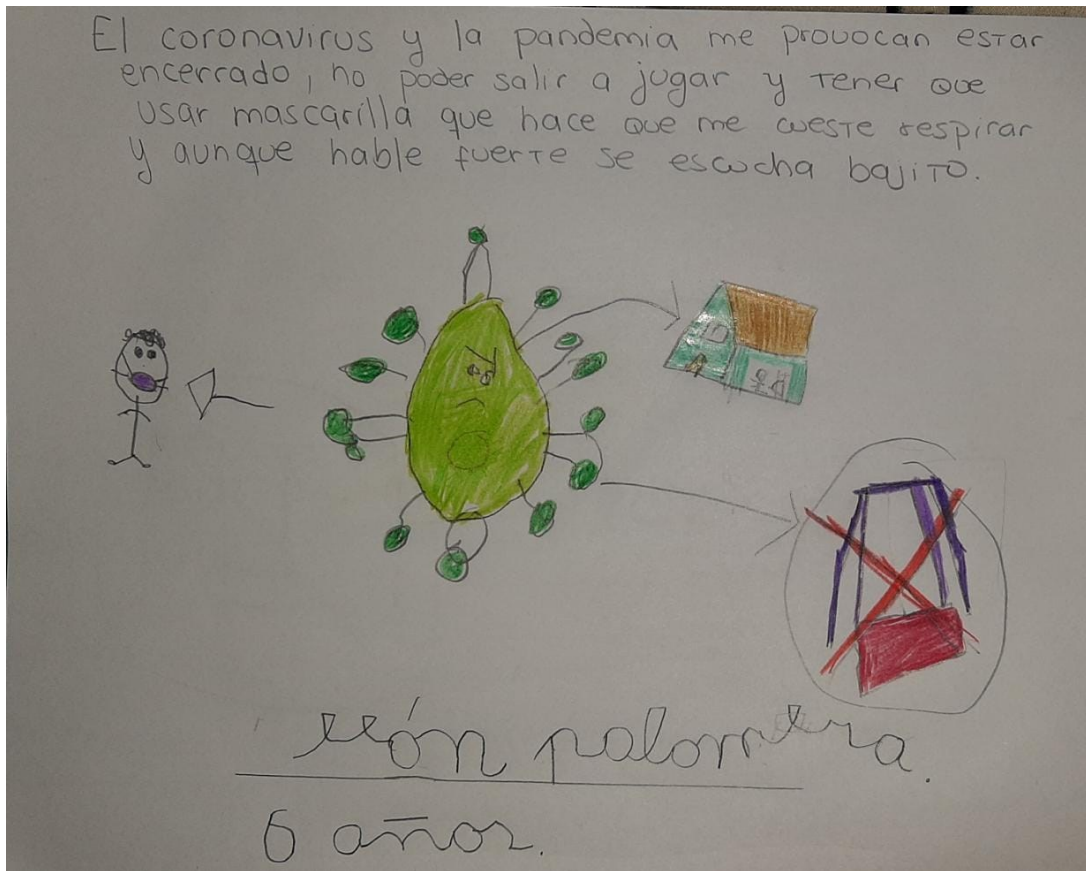 El coronavirus y la pandemia me provocan estar
encerrado, no poder salir a jugar y tener que
usar mascarilla que hace que me cueste respirar
y aunque hable fuerte se escucha bajito.
6 años.